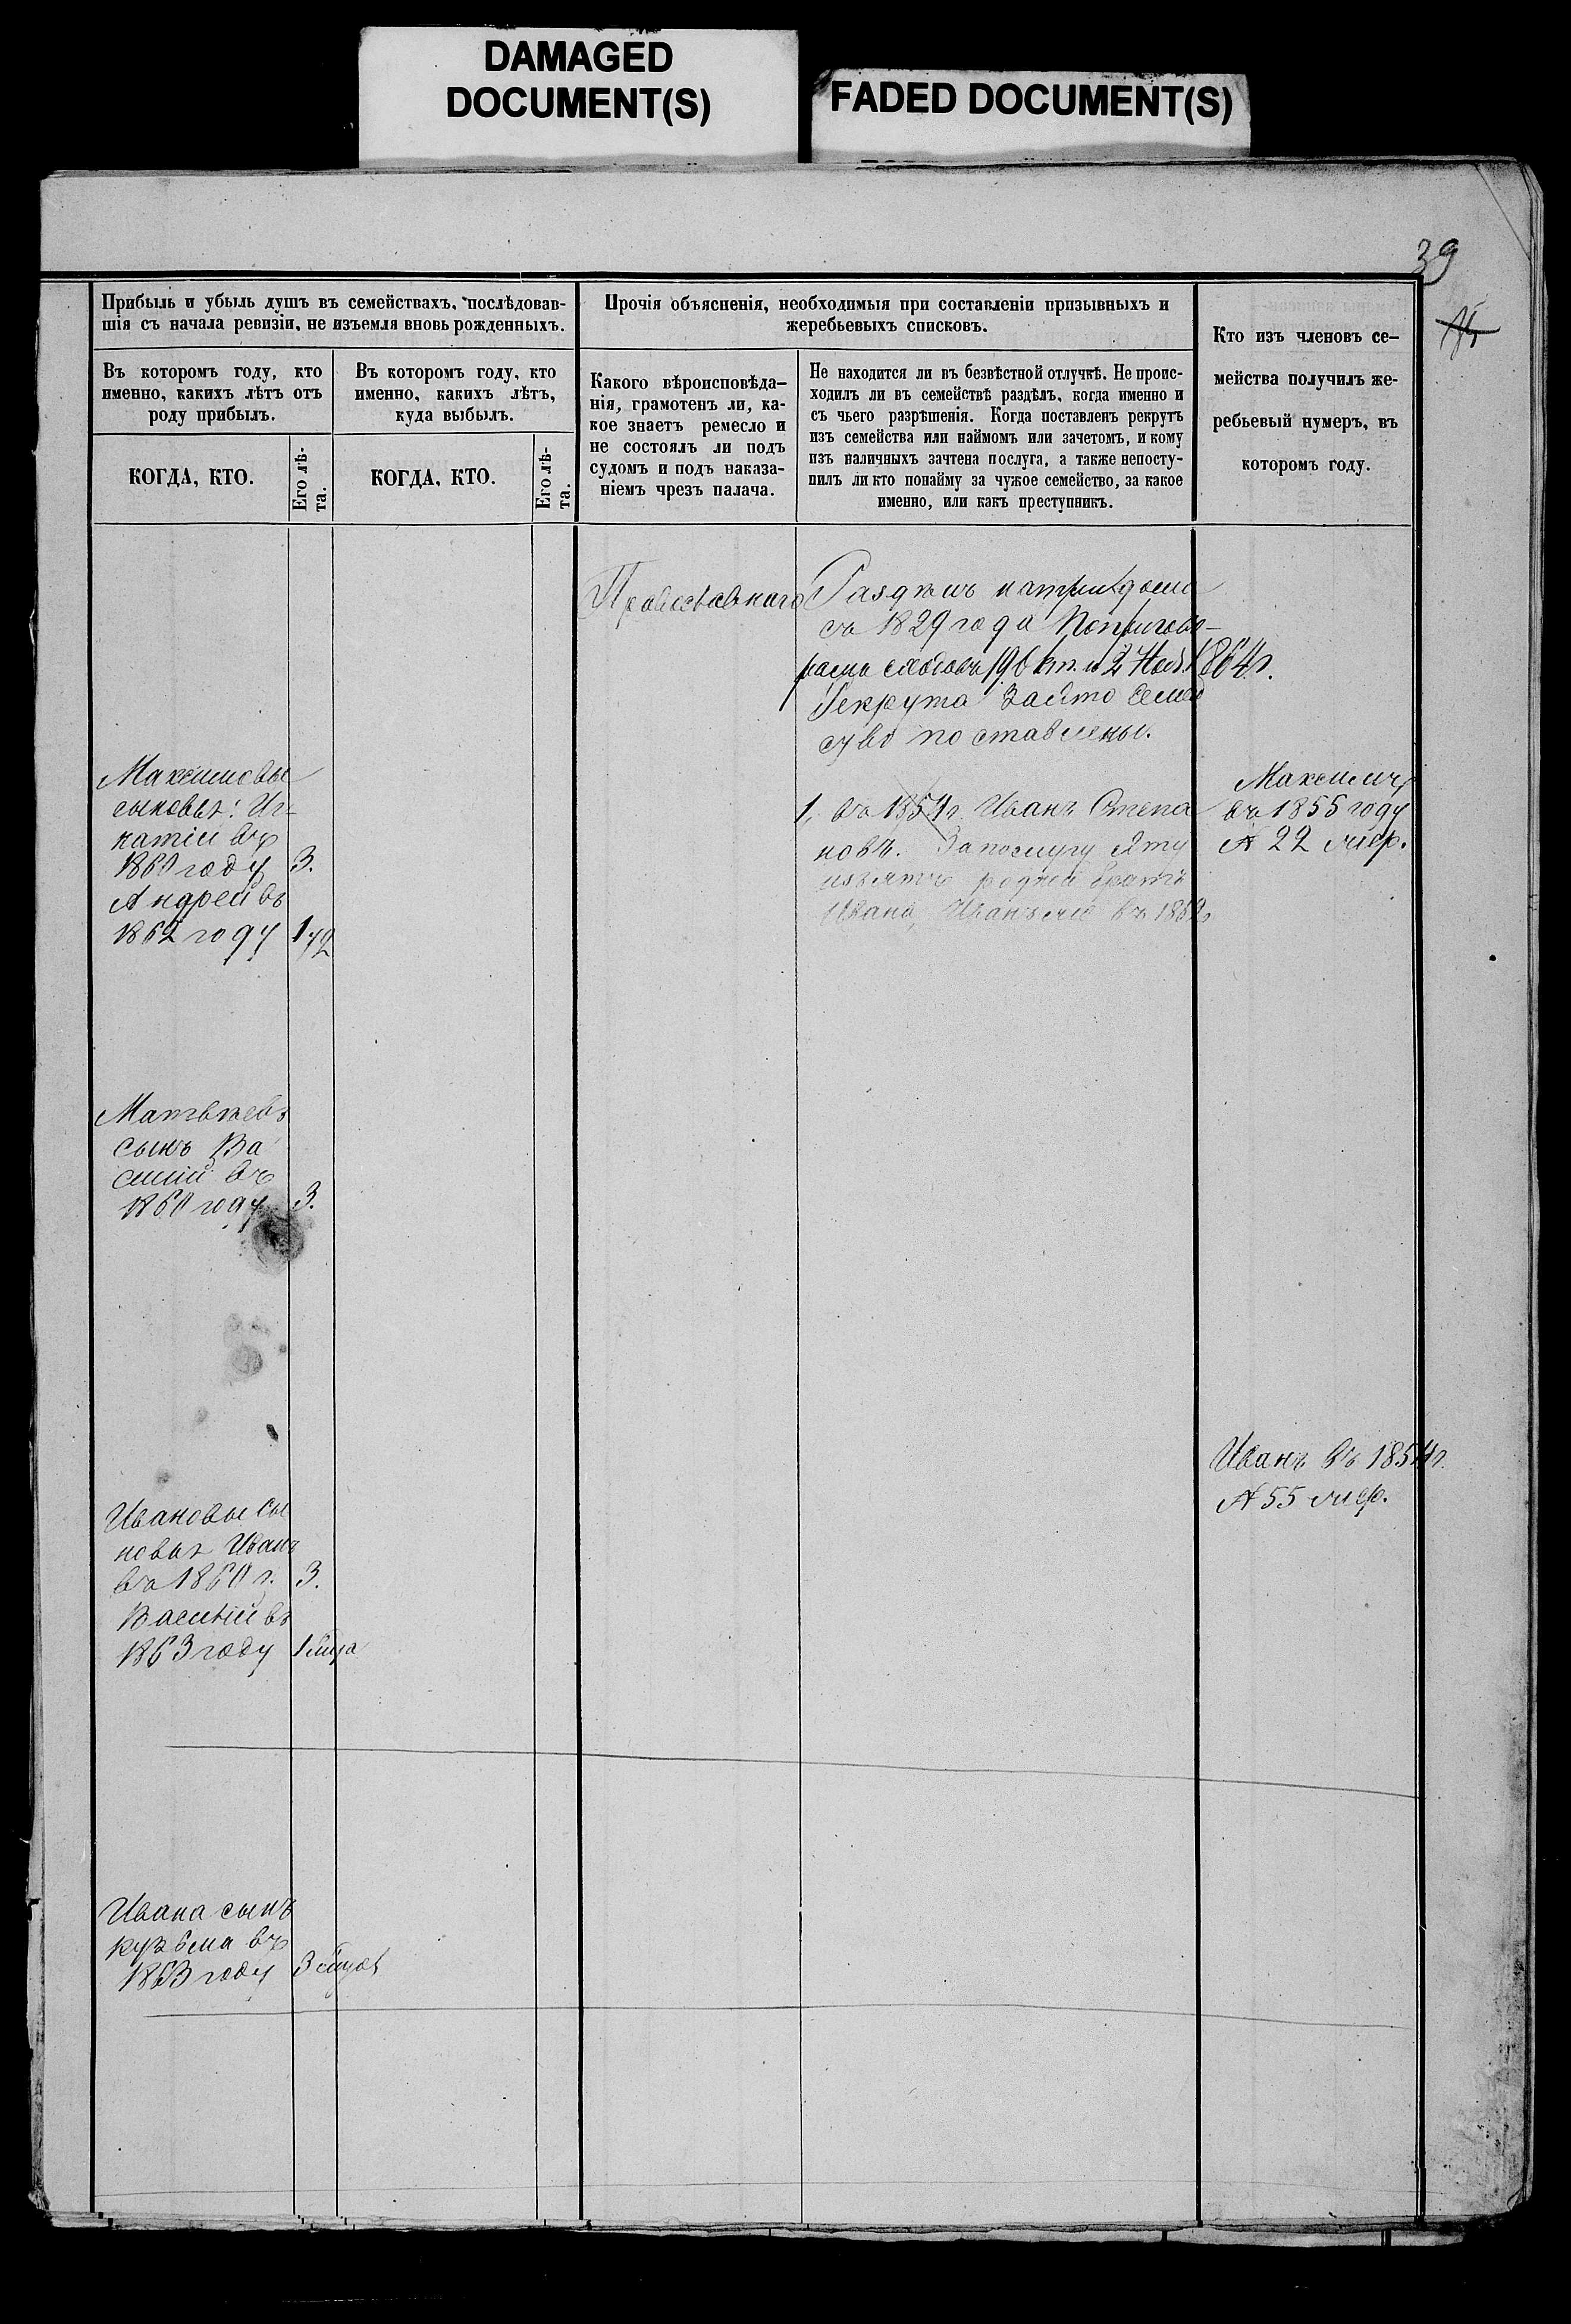 DAMAGED
DOCUMENT(S)
FADED DOCUMENT(S)
39
Прибыль и убыль душъ въ семействахъ, послѣдовав-
шія съ начала ревизіи, не изъемля вновь рожденныхъ.
Въ которомъ году, кто
именно, какихъ лѣтъ отъ
роду прибылъ.
КОГДА, КТО.
Его лѣ-
та.
Въ которомъ году, кто
именно, какихъ лѣтъ,
куда выбылъ.
КОГДА, КТО.
Его лѣ-
та.
Прочія объясненія, необходимыя при составленіи призывныхъ и
жеребьевыхъ списковъ.
Какого вѣроисповѣда-
нія, грамотенъ ли, ка-
кое знаетъ ремесло и
не состоялъ ли подъ
судомъ и подъ наказа-
ніемъ чрезъ палача.
Не находится ли въ безвѣстной отлучкѣ. Не проис-
ходилъ ли въ семействѣ раздѣлъ, когда именно и
съ чьего разрѣшенія. Когда поставленъ рекрутъ
изъ семейства или наймомъ или зачетомъ, и кому
изъ наличныхъ зачтена послуга, а также непосту-
пилъ ли кто понайму за чужое семейство, за какое
именно, или какъ преступникъ.
Кто изъ членовъ се-
мейства получилъ же-
ребьевый нумеръ, въ
которомъ году.
Православнаго
Раздѣлъ натри дома
съ 1829 года
1864г.
Рекрута
поставлены.
1, въ 1854г. Иванъ Степа
новъ. За послугу
родной братъ
Ивана, въ 1862г
Максимъ
въ 1855 году
№ 22 нмер.
Максимовы
сыновья: Иг-
натій въ
1860 году 3.
Андрей въ
1862 году 1 1/2
Матвѣевъ
сынъ Ва
силій въ
1860 году 3.
Иванъ въ 1854г.
№ 55 нмер.
Ивановы сы
новья Иванъ
въ 1860 г. 3.
Василій въ
1863 году
Ивана сынъ
кузьма въ
1863 году